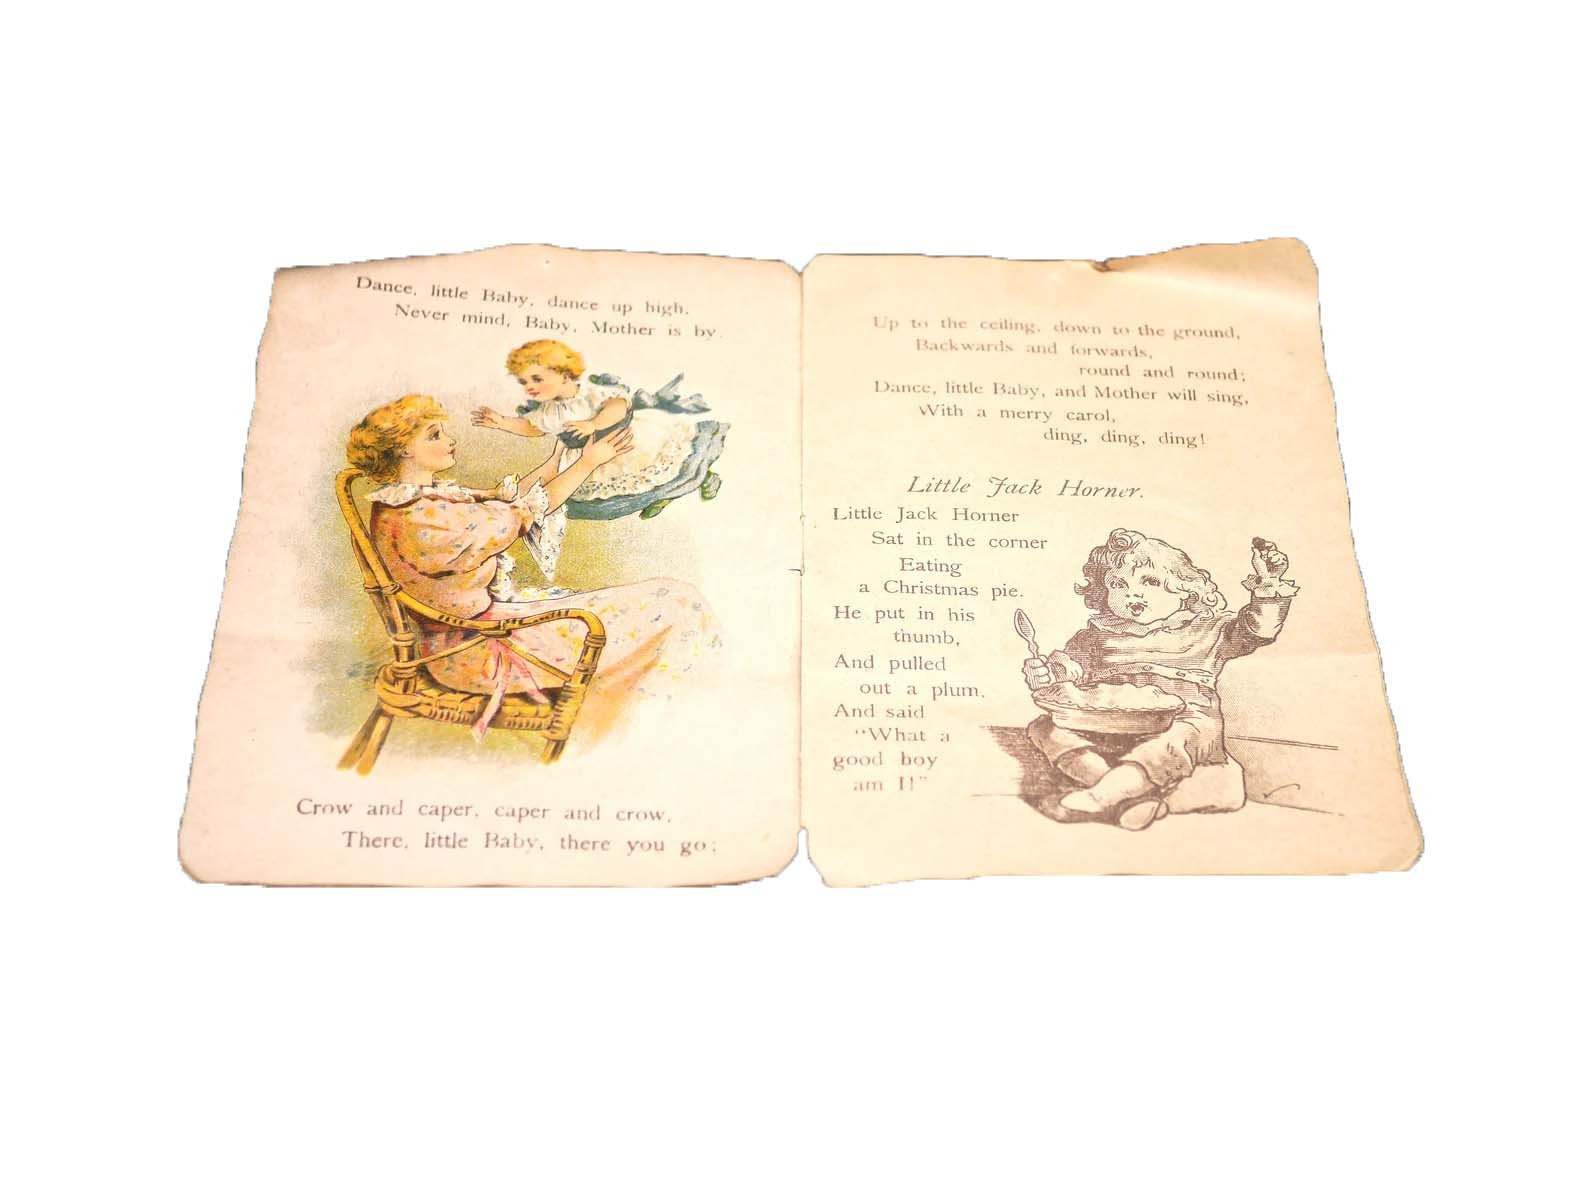 Dance, little Baby, dance up high,
Never mind, Baby, Mother is by.
Crow and caper, caper and crow,
There, little Baby, there you go;
Up to the ceiling, down to the ground,
Backwards and forwards,
round and round;
Dance, little Baby, and Mother will sing,
With a merry carol,
ding, ding, ding!
Little Jack Horner.
Little Jack Horner
Sat in the corner
Eating
a Christmas pie.
He put in his
thumb,
And pulled
out a plum,
And said
"What a
good boy
am I!"